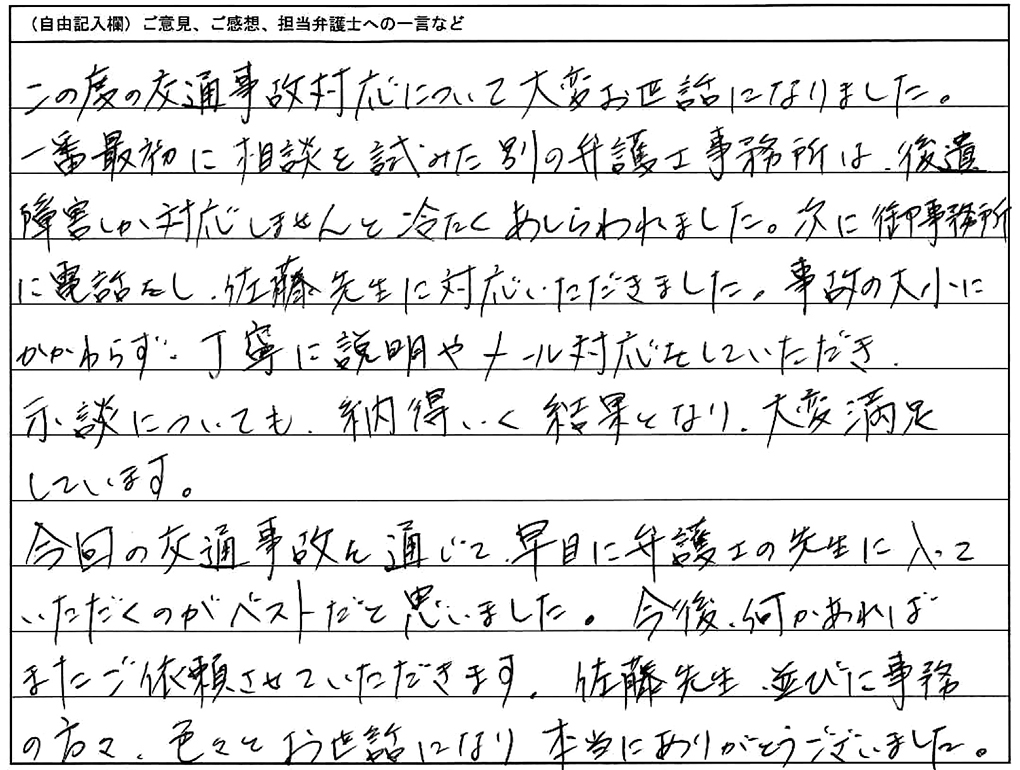 （自由記入欄）ご意見、ご感想、担当弁護士への一言など
この度の交通事故対応について大変お世話になりました。
一番最初に相談を試みた別の弁護士事務所は、後遺
障害しか対応しませんと冷たくあしらわれました。次に御事務所
に電話をし、佐藤先生に対応いただきました。事故の大小に
かかわらず、丁寧に説明やメール対応をしていただき、
示談についても、納得いく結果となり、大変満足
しています。
今回の交通事故を通じて、早目に弁護士の先生に入って
いただくのがベストだと思いました。今後、何かあれば
またご依頼させていただきます。佐藤先生、並びに事務
の方々、色々とお世話になり本当にありがとうございました。